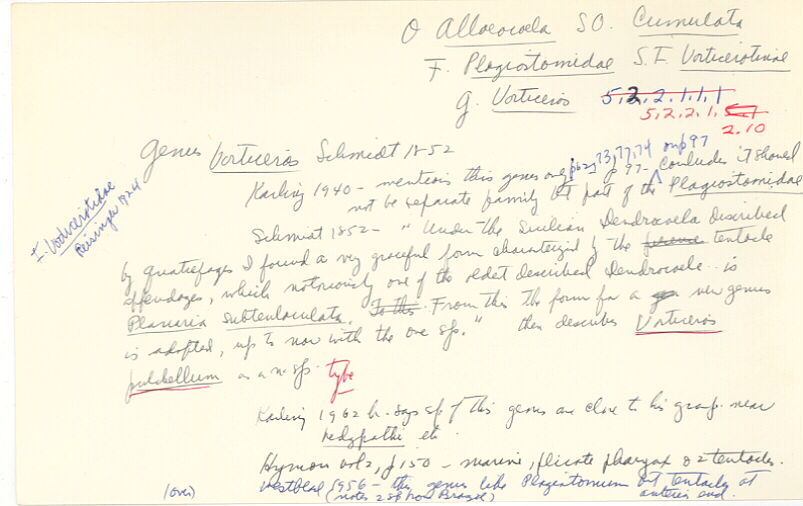 O Alloeocoela SO. Cumulata
F. Plagiostomidae S.F. Vorticerotinae
G. Vorticeros 5.2.2.1.1.1
5.2.2.1.
2.10
Genus Vorticeros Schmidt 1852
F. Vorticerotidae
Reisinger 1924
73, 77, 74 on p 97
Karling 1940 - mentions this genus on p 62, p 97 - concludes it should
not be separate family but part of the Plagiostomidae
Schmidt 1852 - "Under the Sicilian Dendrocoela described
by Quatrefages I found a very graceful form characterized by the tentacle
appendages, which notoriously one of the oldest described Dendrocoele is
Planaria subtentaculata. To this From this the form for a gen new genus
is adopted, up to now with the one sp." then describes Vorticeros
pulchellum as a n. sp. type
Karling 1962 b. says sp of this genus are close to his group near
hedgpethi etc
Hyman vol 2, p 150 - marine, plicate pharynx & 2 tentacles.
Westblad 1956 - this genus like Plagiostomum but tentacles at
(over) (notes 2 sp from Brazil) anterior end.